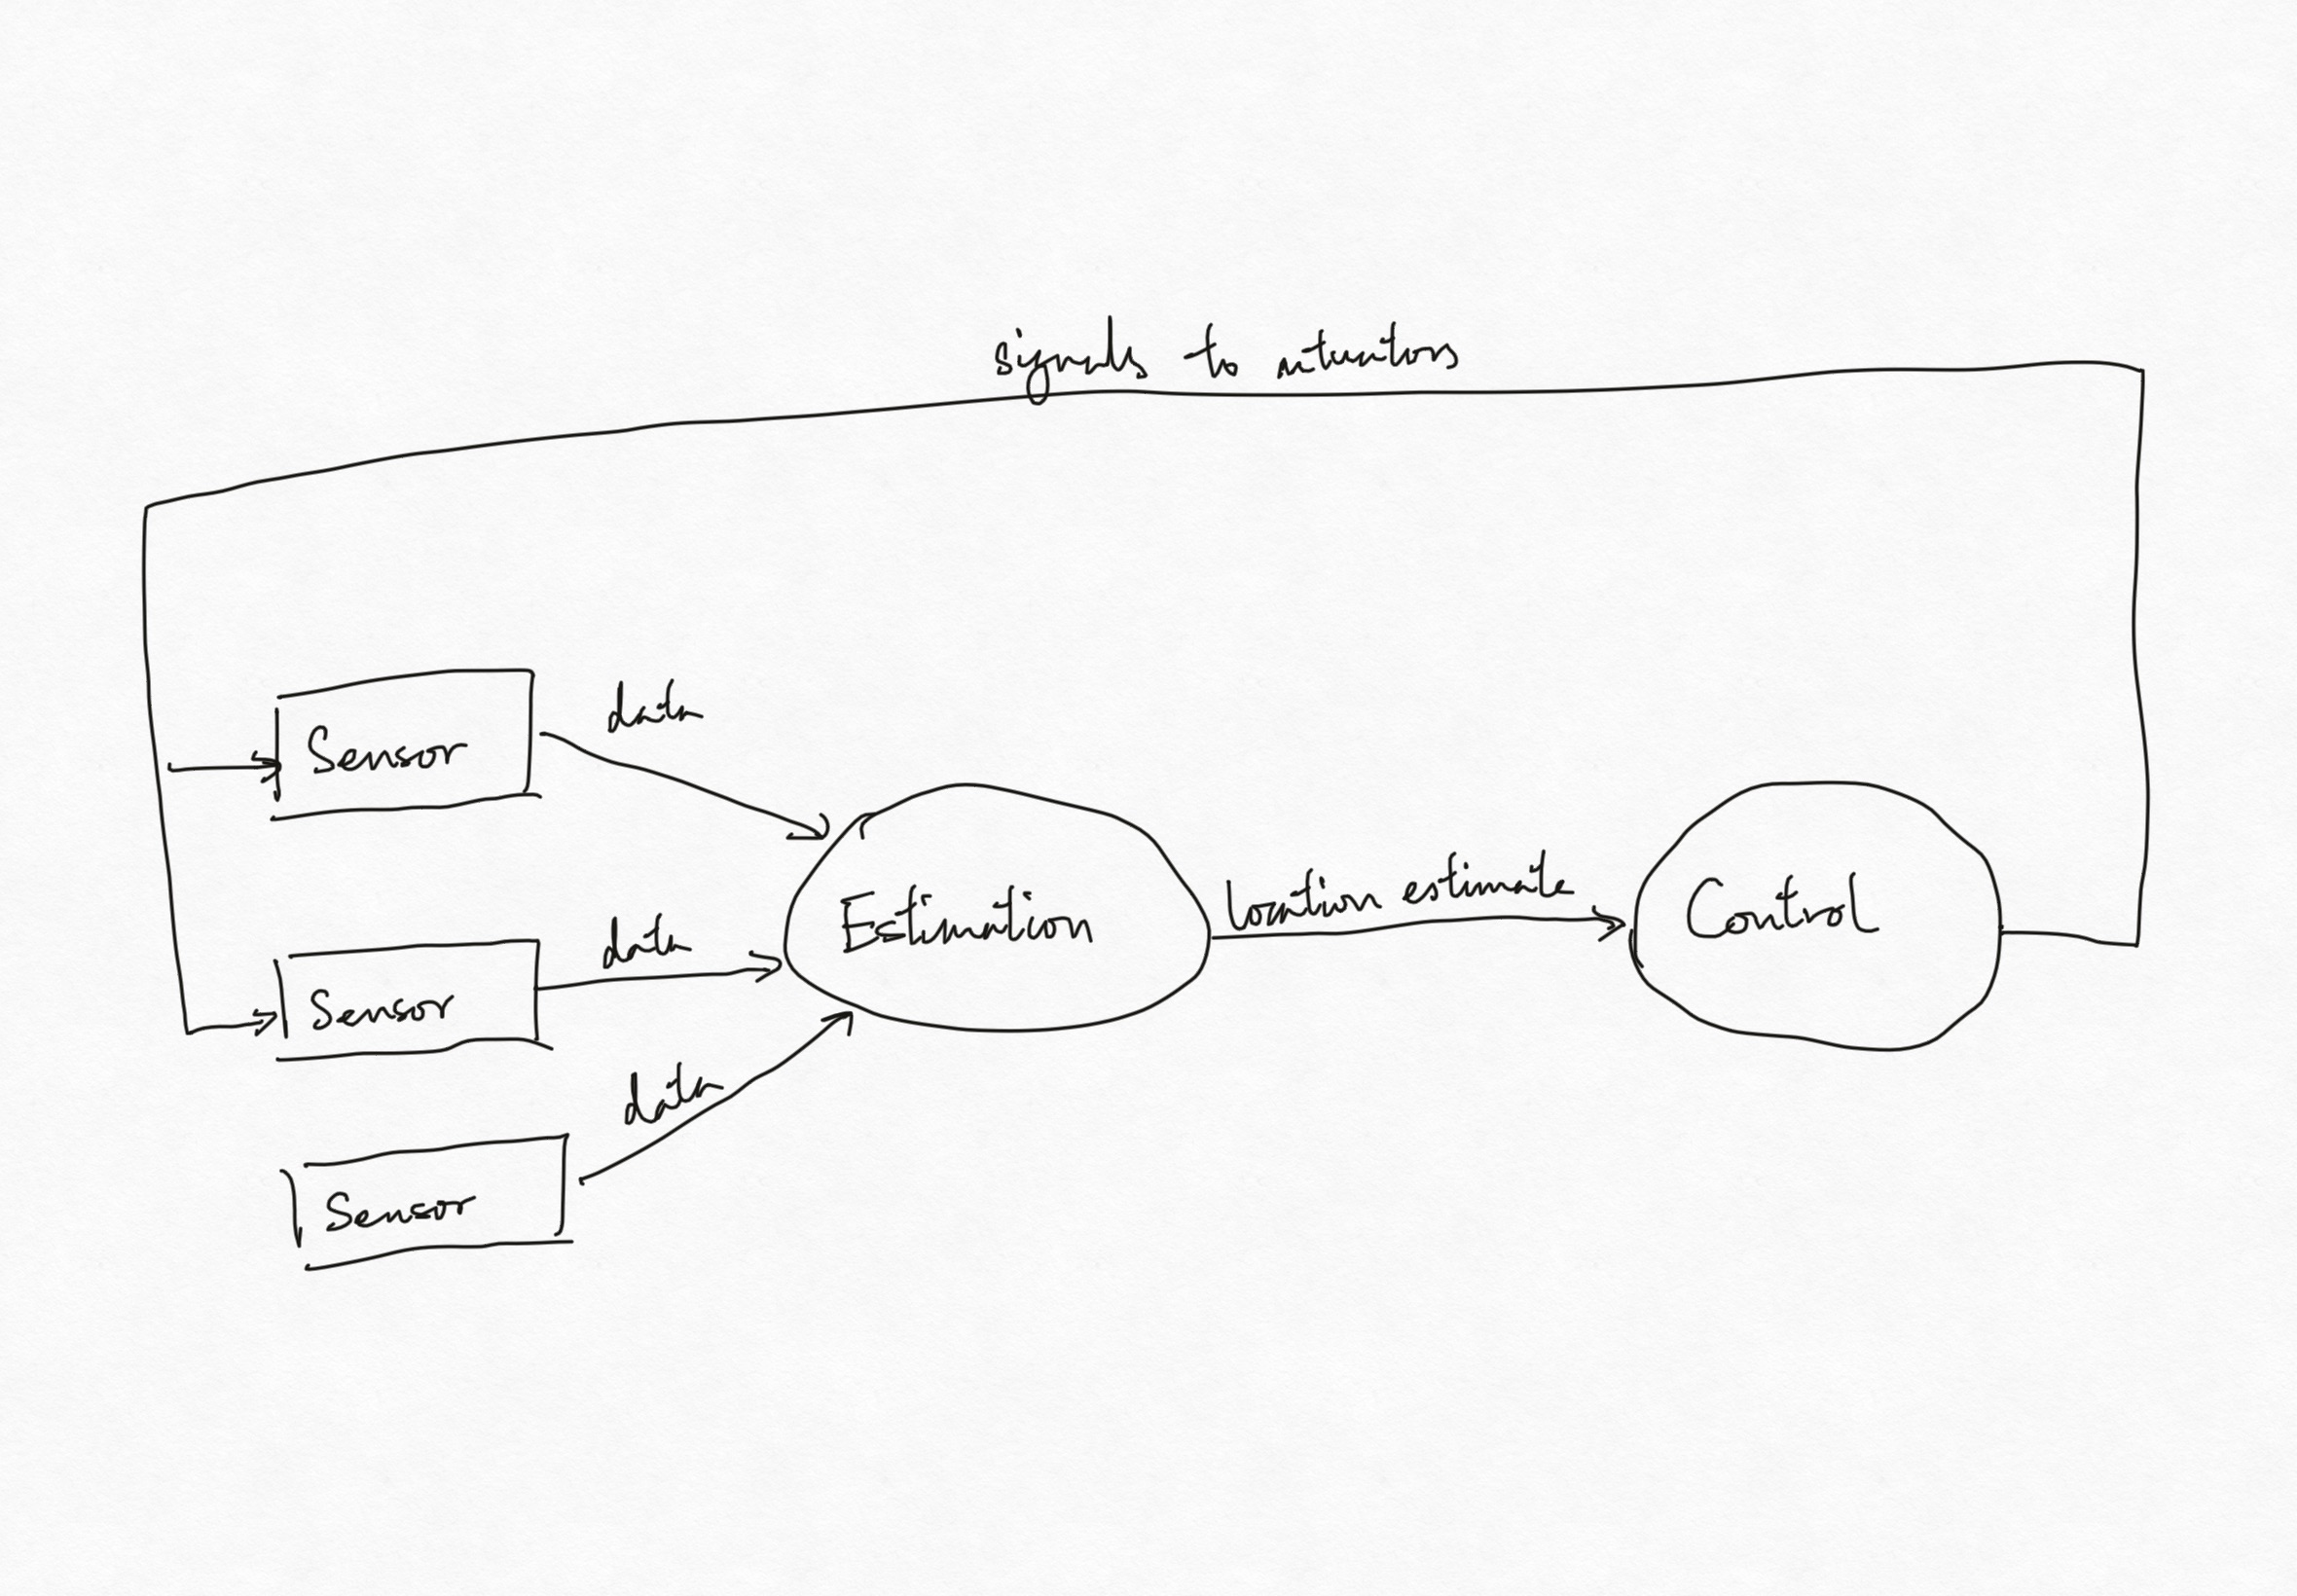 signals to actuators
Sensor
data
Sensor
data
Sensor
data
Estimation
location estimate
Control